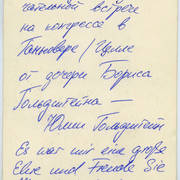 чательной встрече
на конгрессе в
Ганновере / Целле
от дочери Бориса
Гольдштейна —
Юлии Гольдштейн
Es war mir eine große
Ehre und Freude Sie